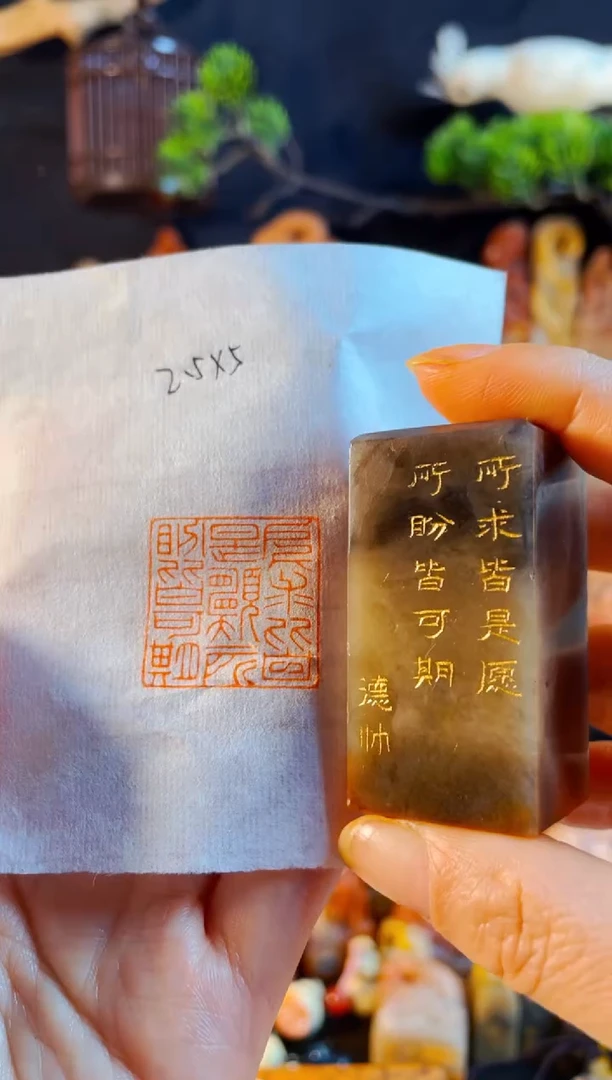 2.5X5
所求皆
是願所
盼皆可期
所求皆是愿
所盼皆可期
德帅